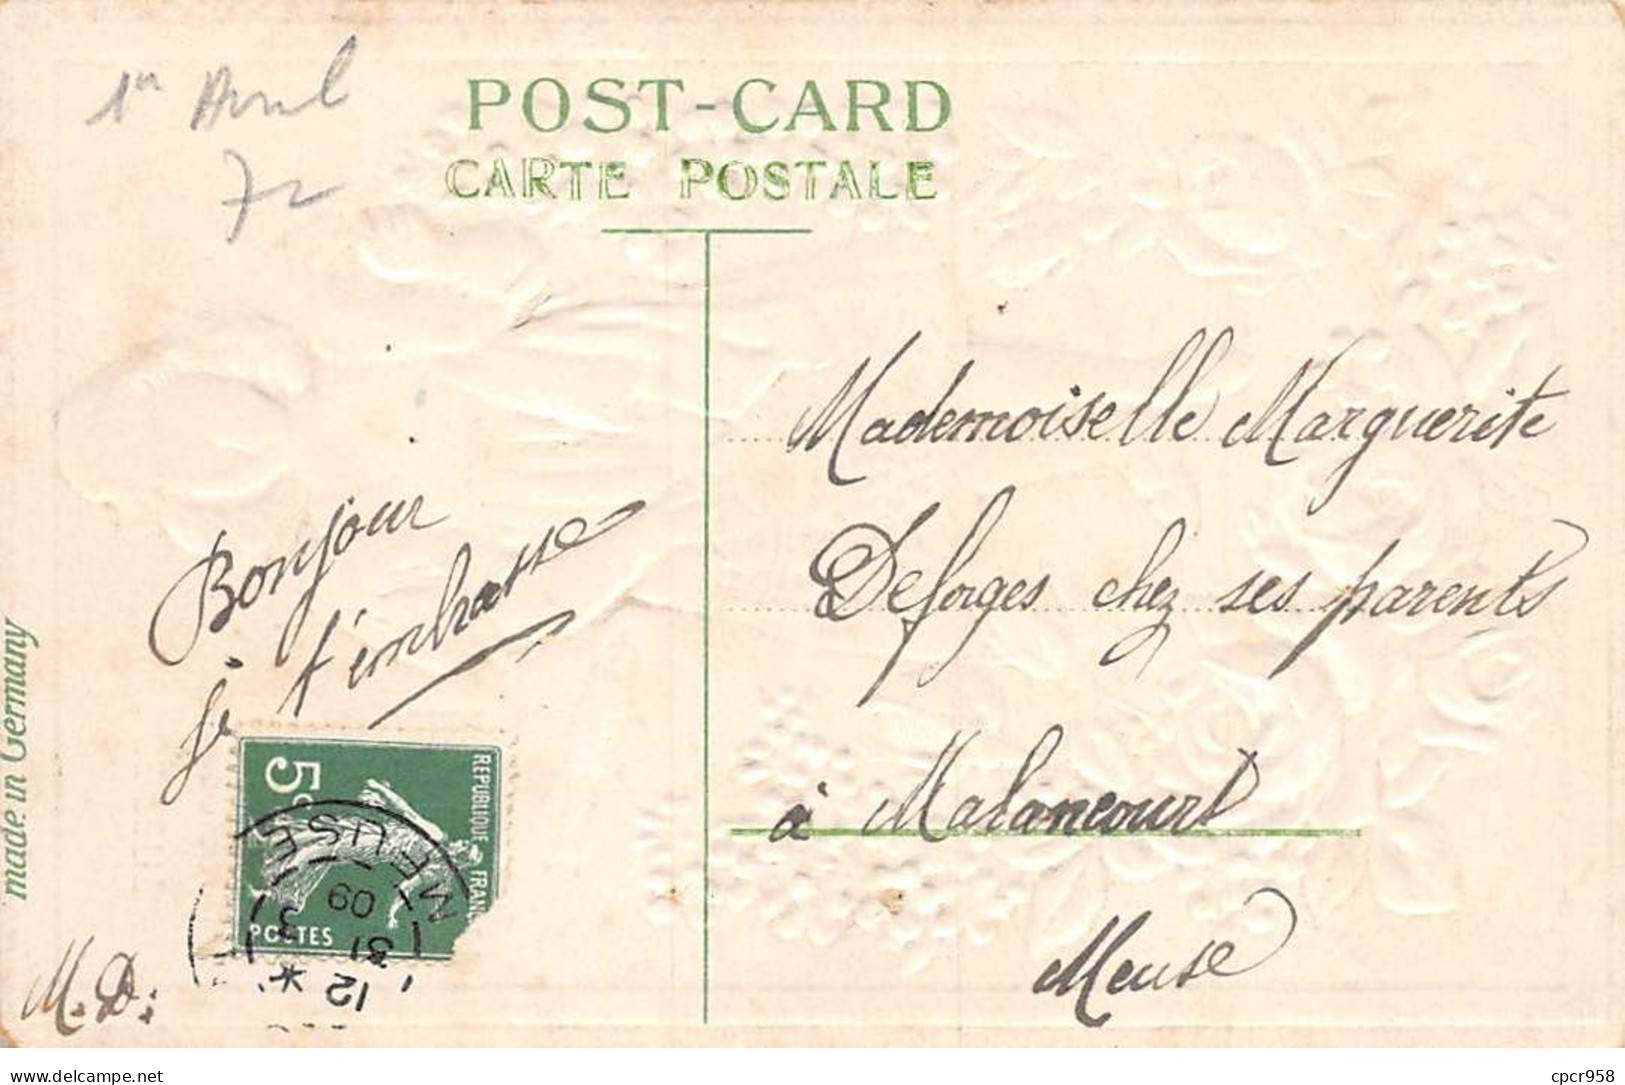 1er Avril
72
POST-CARD
CARTE POSTALE
Bonjour
je t'embrasse
Mademoiselle Marguerite
Deforges chez ses parents
à Malancourt
Meuse
made in Germany
5c
REPUBLIQUE FRANC
POSTES
MEUSE
12 *
31 3
09
M. D.
www.delcampe.net
cpcr958